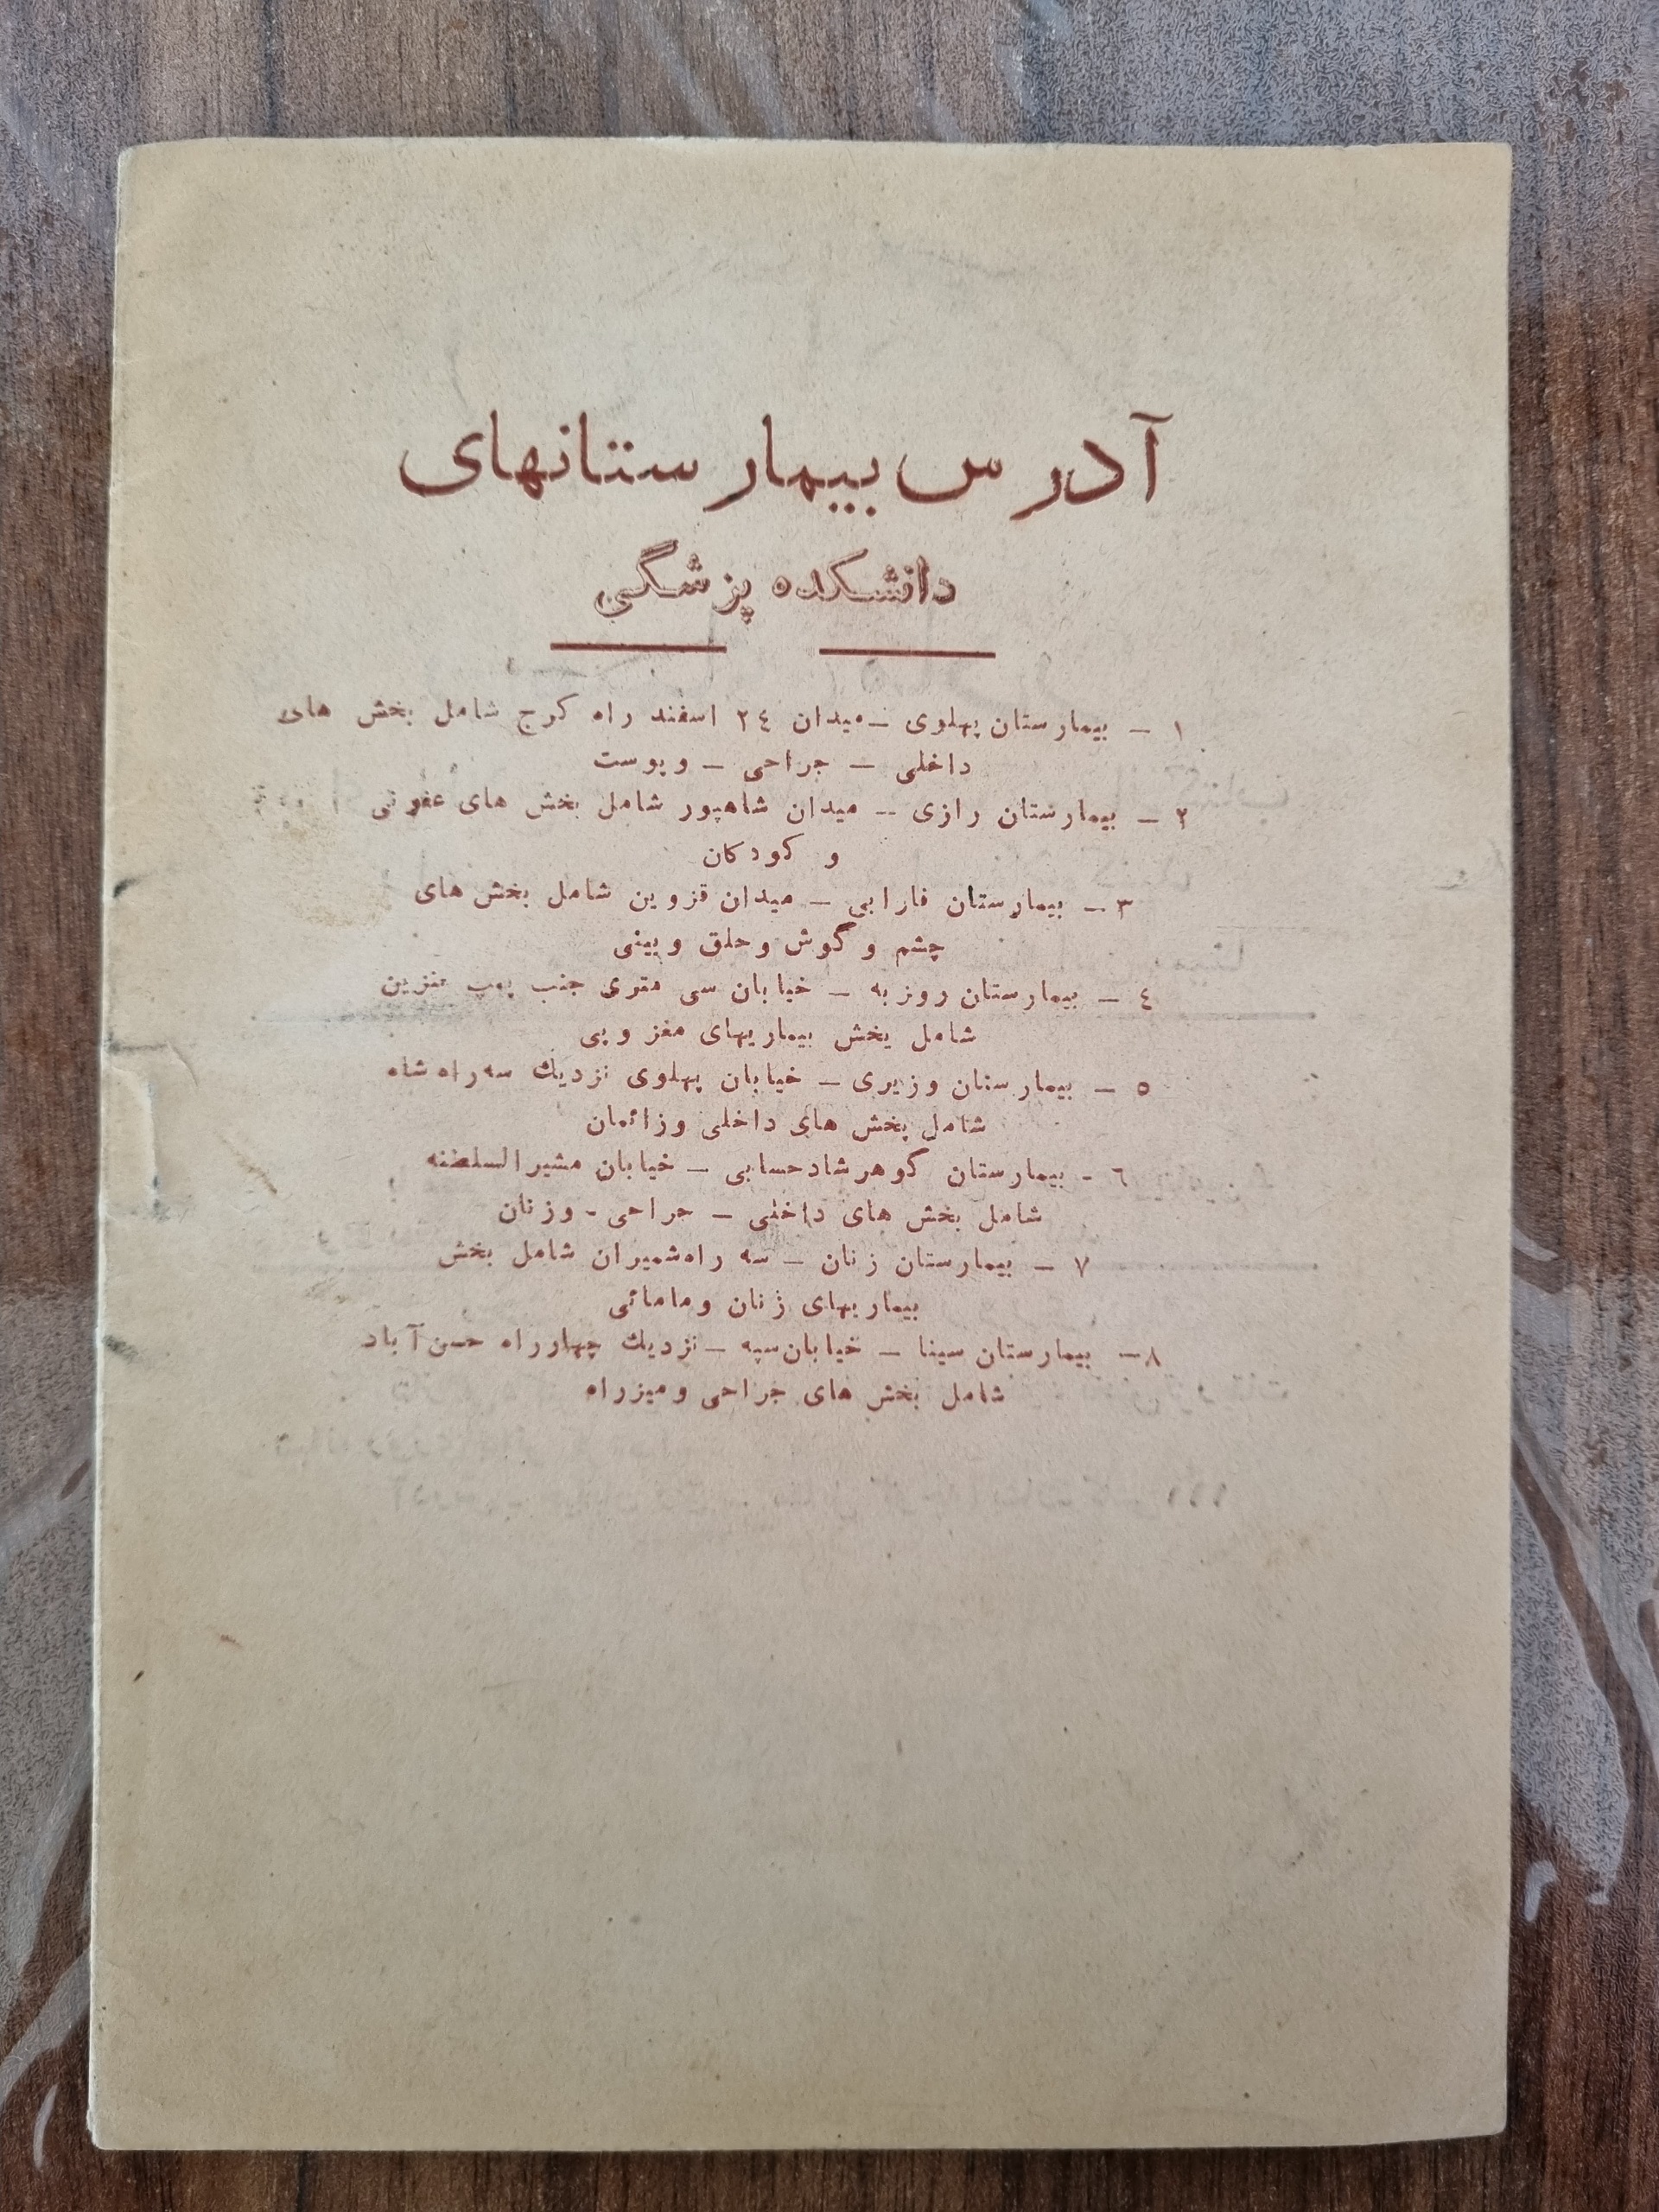 آدرس بیمارستانهای
دانشکده پزشگی
۱ – بیمارستان پهلوی – میدان ۲٤ اسفند راه کرج شامل بخش های
داخلی – جراحی – و پوست
۲ – بیمارستان رازی – میدان شاهپور شامل بخش های عفونی
و کودکان
۳ – بیمارستان فارابی – میدان قزوین شامل بخش های
چشم و گوش و حلق و بینی
٤ – بیمارستان روزبه – خیابان سی متری جنب پمپ بنزین
شامل بخش بیماریهای مغز و پی
۵ – بیمارستان وزیری – خیابان پهلوی نزدیك سه راه شاه
شامل بخش های داخلی و زائمان
٦ - بیمارستان گوهرشاد حسابی – خیابان مشیرالسلطنه
شامل بخش های داخلی – جراحی - و زنان
۷ – بیمارستان زنان – سه راه شمیران شامل بخش
بیماریهای زنان و مامائی
۸ – بیمارستان سینا – خیابان سپه – نزدیك چهار راه حسن آباد
شامل بخش های جراحی و میزراه